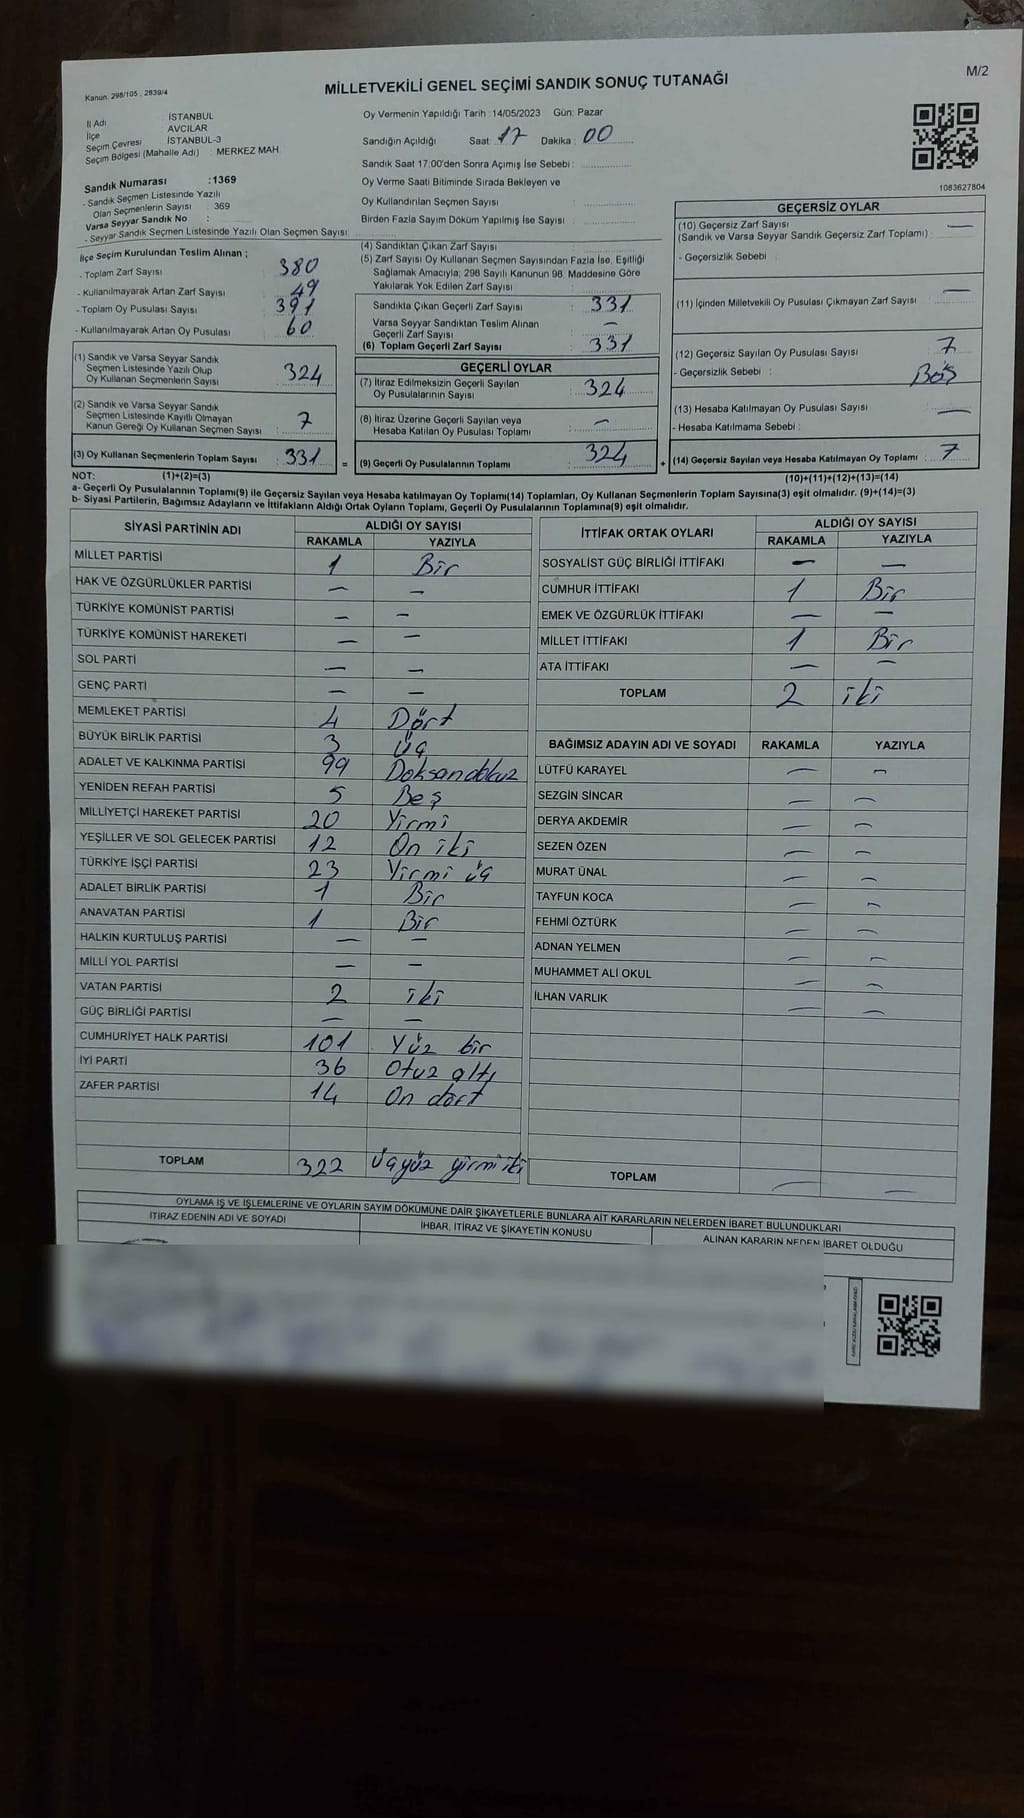 Kanun: 298/105 ; 2839/4
MİLLETVEKİLİ GENEL SEÇİMİ SANDIK SONUÇ TUTANAĞI
M/2
İl Adı : İSTANBUL
İlçe AVCILAR
Seçim Çevresi İSTANBUL-3
Seçim Bölgesi (Mahalle Adı) : MERKEZ MAH.
Sandık Numarası :1369
- Sandık Seçmen Listesinde Yazılı
Olan Seçmenlerin Sayısı : 369
Varsa Seyyar Sandık No :
- Seyyar Sandık Seçmen Listesinde Yazılı Olan Seçmen Sayısı:
Oy Vermenin Yapıldığı Tarih : 14/05/2023 Gün: Pazar
Sandığın Açıldığı Saat: 17 Dakika : 00
Sandık Saat 17:00'den Sonra Açımış İse Sebebi :
Oy Verme Saati Bitiminde Sırada Bekleyen ve
Oy Kullandırılan Seçmen Sayısı :
Birden Fazla Sayım Döküm Yapılmış İse Sayısı :
1083627804
İlçe Seçim Kurulundan Teslim Alınan ;
- Toplam Zarf Sayısı : 380
- Kullanılmayarak Artan Zarf Sayısı : 49
- Toplam Oy Pusulası Sayısı : 391
- Kullanılmayarak Artan Oy Pusulası : 60
(1) Sandık ve Varsa Seyyar Sandık
Seçmen Listesinde Yazılı Olup
Oy Kullanan Seçmenlerin Sayısı : 324
(2) Sandık ve Varsa Seyyar Sandık
Seçmen Listesinde Kayıtlı Olmayan
Kanun Gereği Oy Kullanan Seçmen Sayısı : 7
(3) Oy Kullanan Seçmenlerin Toplam Sayısı : 331 =
(4) Sandıktan Çıkan Zarf Sayısı :
(5) Zarf Sayısı Oy Kullanan Seçmen Sayısından Fazla İse, Eşitliği
Sağlamak Amacıyla; 298 Sayılı Kanunun 98. Maddesine Göre
Yakılarak Yok Edilen Zarf Sayısı :
Sandıkta Çıkan Geçerli Zarf Sayısı : 331
Varsa Seyyar Sandıktan Teslim Alınan
Geçerli Zarf Sayısı : —
(6) Toplam Geçerli Zarf Sayısı : 331
GEÇERLİ OYLAR
(7) İtiraz Edilmeksizin Geçerli Sayılan
Oy Pusulalarının Sayısı : 324
(8) İtiraz Üzerine Geçerli Sayılan veya
Hesaba Katılan Oy Pusulası Toplamı : —
(9) Geçerli Oy Pusulalarının Toplamı : 324 +
GEÇERSİZ OYLAR
(10) Geçersiz Zarf Sayısı : —
(Sandık ve Varsa Seyyar Sandık Geçersiz Zarf Toplamı) :
- Geçersizlik Sebebi :
(11) İçinden Milletvekili Oy Pusulası Çıkmayan Zarf Sayısı : —
(12) Geçersiz Sayılan Oy Pusulası Sayısı : 7
- Geçersizlik Sebebi : Boş
(13) Hesaba Katılmayan Oy Pusulası Sayısı : —
- Hesaba Katılmama Sebebi :
(14) Geçersiz Sayılan veya Hesaba Katılmayan Oy Toplamı : 7
NOT: (1)+(2)=(3) (10)+(11)+(12)+(13)=(14)
a- Geçerli Oy Pusulalarının Toplamı(9) ile Geçersiz Sayılan veya Hesaba katılmayan Oy Toplamı(14) Toplamları, Oy Kullanan Seçmenlerin Toplam Sayısına(3) eşit olmalıdır. (9)+(14)=(3)
b- Siyasi Partilerin, Bağımsız Adayların ve İttifakların Aldığı Ortak Oyların Toplamı, Geçerli Oy Pusulalarının Toplamına(9) eşit olmalıdır.
SİYASİ PARTİNİN ADI ALDIĞI OY SAYISI
RAKAMLA YAZIYLA
MİLLET PARTİSİ 1 Bir
HAK VE ÖZGÜRLÜKLER PARTİSİ — —
TÜRKİYE KOMÜNİST PARTİSİ — —
TÜRKİYE KOMÜNİST HAREKETİ — —
SOL PARTİ — —
GENÇ PARTİ — —
MEMLEKET PARTİSİ 4 Dört
BÜYÜK BİRLİK PARTİSİ 3 Üç
ADALET VE KALKINMA PARTİSİ 99 Doksandokuz
YENİDEN REFAH PARTİSİ 5 Beş
MİLLİYETÇİ HAREKET PARTİSİ 20 Yirmi
YEŞİLLER VE SOL GELECEK PARTİSİ 12 On iki
TÜRKİYE İŞÇİ PARTİSİ 23 Yirmi üç
ADALET BİRLİK PARTİSİ 1 Bir
ANAVATAN PARTİSİ 1 Bir
HALKIN KURTULUŞ PARTİSİ — —
MİLLİ YOL PARTİSİ — —
VATAN PARTİSİ 2 iki
GÜÇ BİRLİĞİ PARTİSİ — —
CUMHURİYET HALK PARTİSİ 101 Yüz bir
İYİ PARTİ 36 Otuz altı
ZAFER PARTİSİ 14 On dört
TOPLAM 322 Üçyüz yirmi iki
İTTİFAK ORTAK OYLARI ALDIĞI OY SAYISI
RAKAMLA YAZIYLA
SOSYALİST GÜÇ BİRLİĞİ İTTİFAKI — —
CUMHUR İTTİFAKI 1 Bir
EMEK VE ÖZGÜRLÜK İTTİFAKI — —
MİLLET İTTİFAKI 1 Bir
ATA İTTİFAKI — —
TOPLAM 2 iki
BAĞIMSIZ ADAYIN ADI VE SOYADI RAKAMLA YAZIYLA
LÜTFÜ KARAYEL — —
SEZGİN SİNCAR — —
DERYA AKDEMİR — —
SEZEN ÖZEN — —
MURAT ÜNAL — —
TAYFUN KOCA — —
FEHMİ ÖZTÜRK — —
ADNAN YELMEN — —
MUHAMMET ALİ OKUL — —
İLHAN VARLIK — —
TOPLAM — —
OYLAMA İŞ VE İŞLEMLERİNE VE OYLARIN SAYIM DÖKÜMÜNE DAİR ŞİKAYETLERLE BUNLARA AİT KARARLARIN NELERDEN İBARET BULUNDUKLARI
İTİRAZ EDENİN ADI VE SOYADI İHBAR, İTİRAZ VE ŞİKAYETİN KONUSU ALINAN KARARIN NEDEN İBARET OLDUĞU